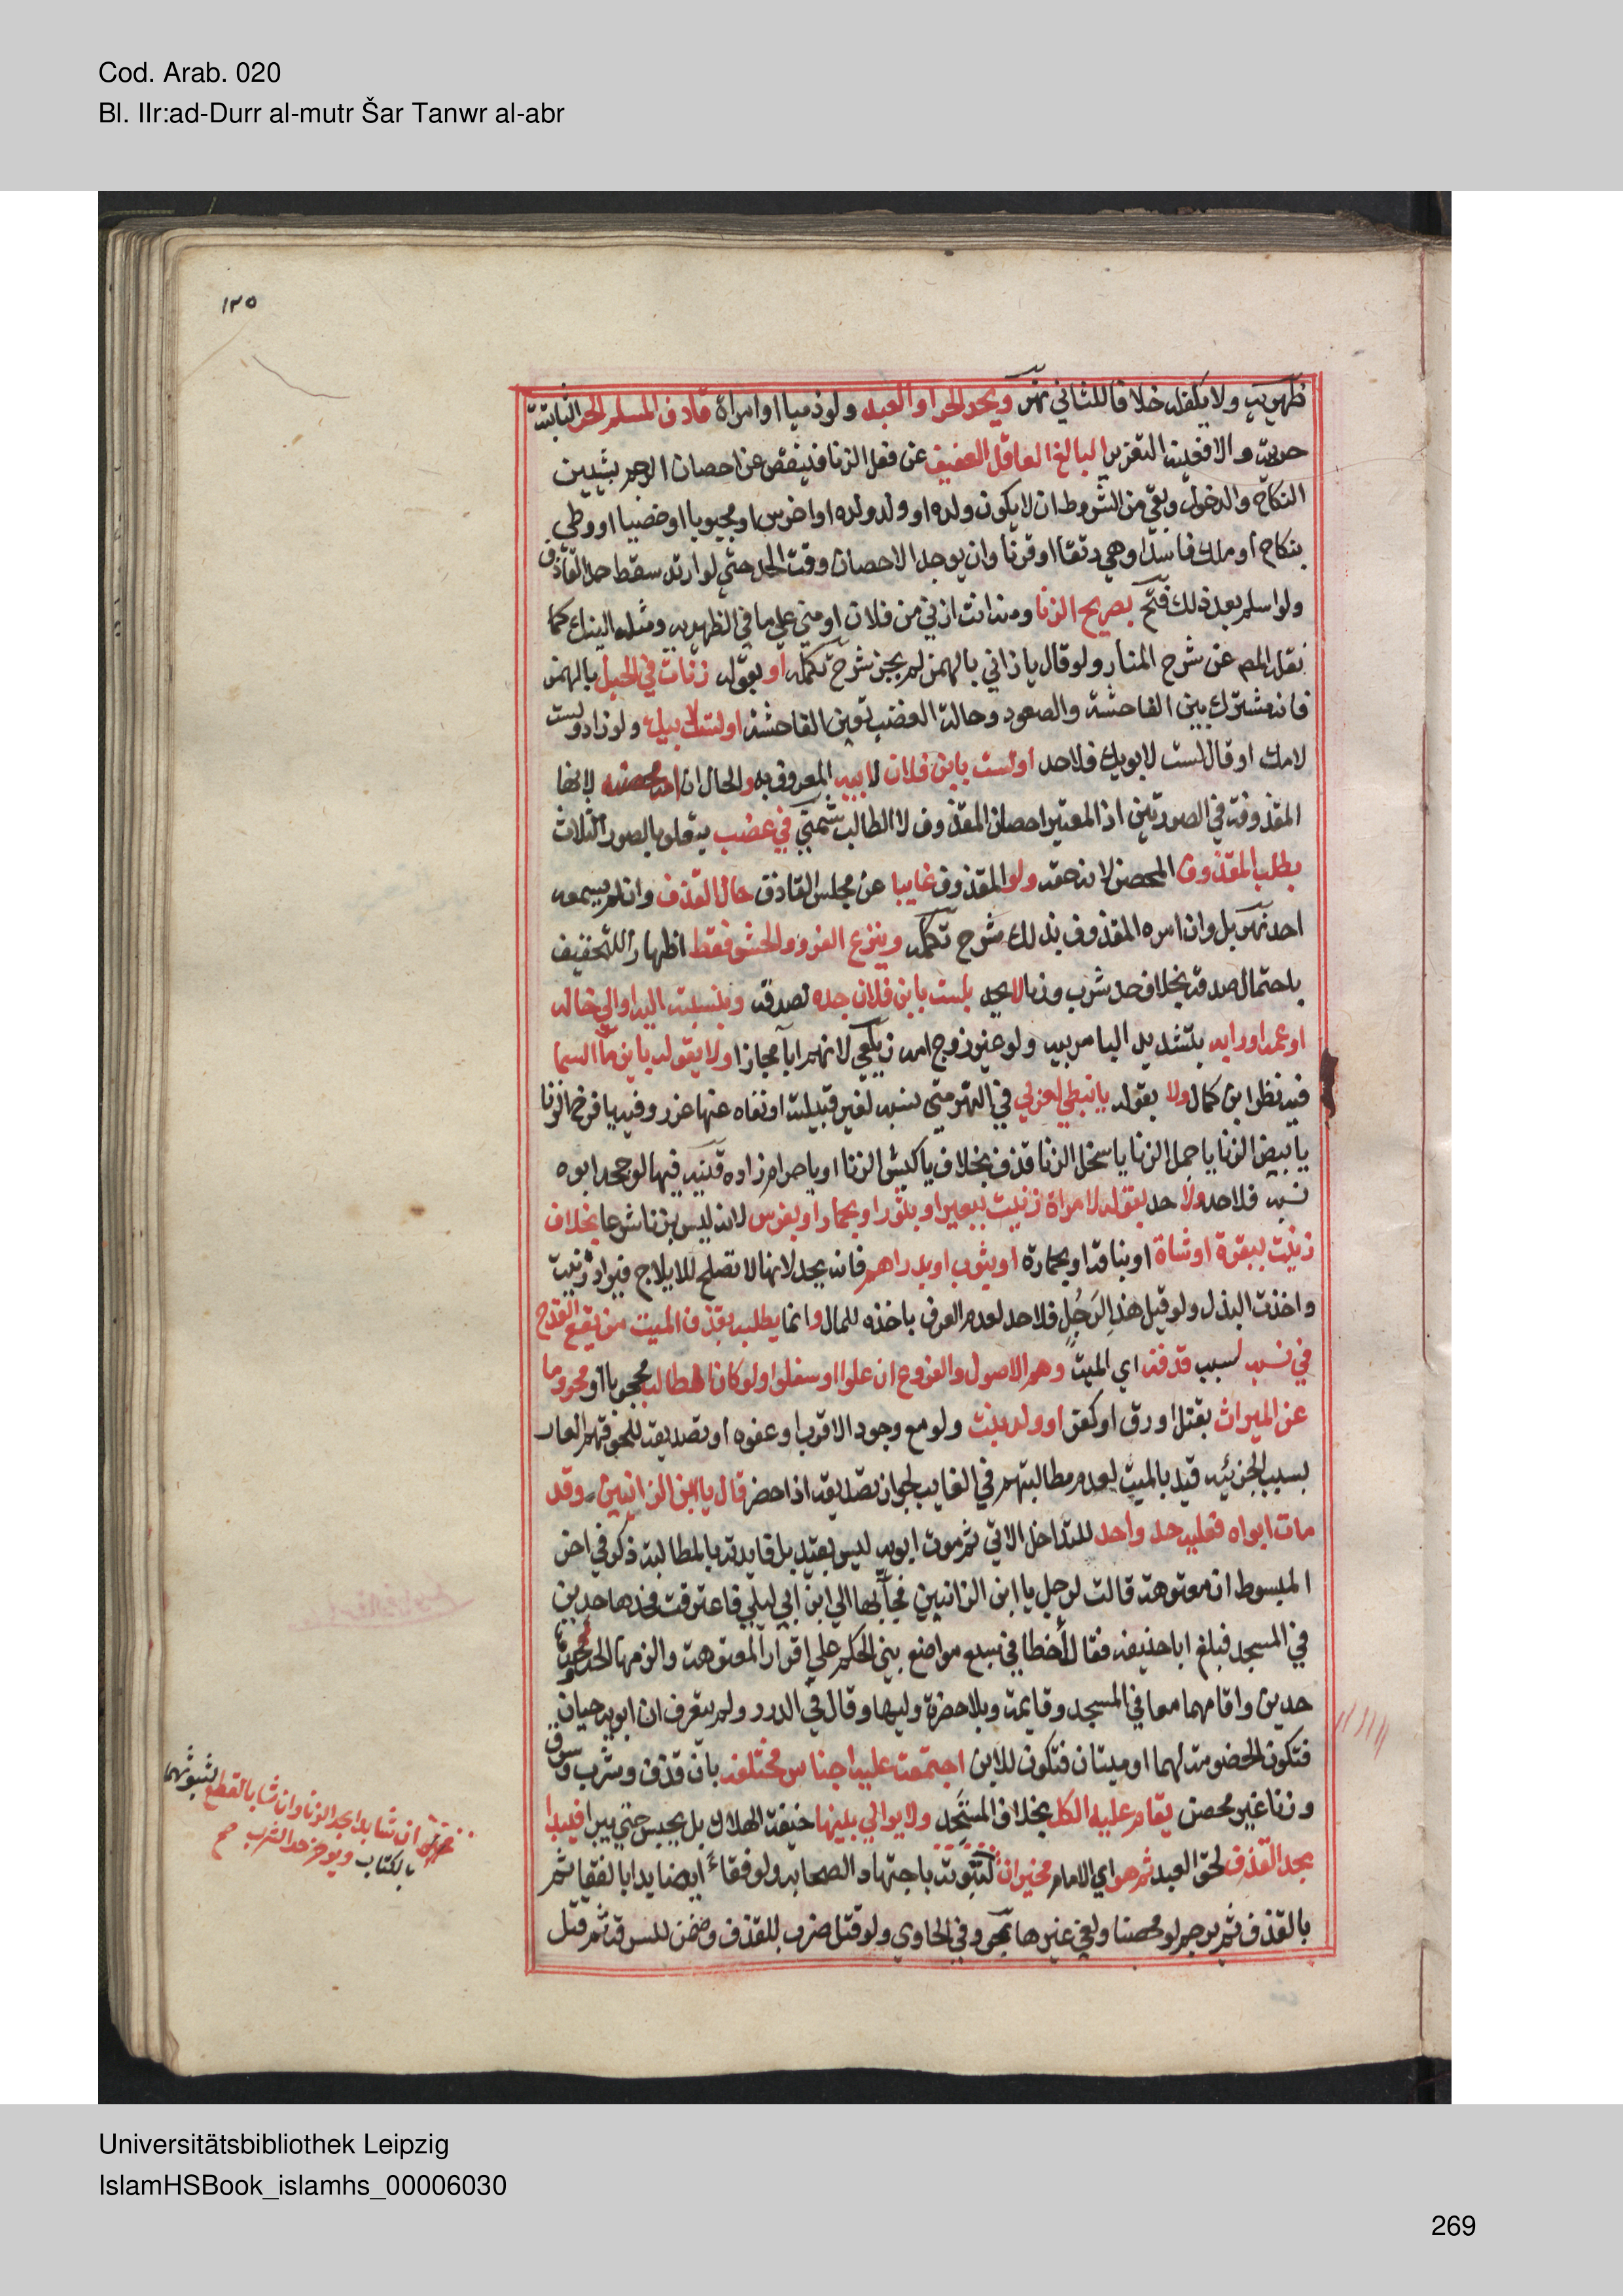 Cod. Arab. 020
Bl. IIr:ad-Durr al-mutr Šar Tanwr al-abr
١٣٥
ظهيرية ولا يكفله خلافا للثاني نهر ويحد الحر او العبد ولو ذميا او امراة قاذف المسلم الحر الثابتة
حريته والا ففيه التعزير البالغ العاقل العفيف عن فعل الزنا فينقص عن احصان الرجم بشيين
النكاح والدخول وبقي من الشروط ان لا يكون ولده او ولد ولده او اخرس او مجبوبا او خصيا او وطي
بنكاح او ملك فاسد او هي رتقا او قرنا وان يوجد الاحصان وقت الحد حتى لو ارتد سقط حد القاذف
ولو اسلم بعد ذلك فتح بصريح الزنا ومنه انت ازني من فلان او مني علي ما في الظهيرية ومثله النيك كما
نقله المص عن شرح المنار ولو قال يا زاني بالهمز لم يجز شرح تكملة او بقوله زنات في الجبل بالهمز
فانه مشترك بين الفاحشة والصعود وحالة الغضب تعين الفاحشة او لست لابيك ولو زاد ولست
لامك او قال لست لابويك فلا حد او لست بابن فلان لابيه المعروف به والحال ان امه محصنه لانها
المقذوفة في الصورتين اذ المعتبر احصان المقذوف لا الطالب شمني في غضب يتعلق بالصور الثلاث
بطلب المقذوف المحصن لانه حقه ولو المقذوف غايبا عن مجلس القاذف حال القذف وان لم يسمعه
احد نهر بل وان امره المقذوف بذلك شرح تكملة وينزع الفرو والحشو فقط اظهارا للتخفيف
باحتمال صدقه بخلاف حد شرب وزنا لا يحد بلست بابن فلان جده لصدقه وبنسبته اليه او الي خاله
او عمه او رابه بتشديد البا مربيه ولو غير زوج امه زيلعي لانهم اباء مجازا ولا بقوله يا ابن ماء السما
فيه نظر ابن كمال ولا بقوله يا نبطي لعربي في النهر متى نسبه لغير قبيلته او نفاه عنها عزر وفيه يا فرخ الزنا
يا بيض الزنا يا حمل الزنا يا سخل الزنا قذف بخلاف يا كبش الزنا او يا حرام زاده قنية فيها لو جحد ابوه
نسبه فلا حد ولا حد بقوله لامراة زنيت ببعير او بثور او بحمار او بفرس لانه ليس بزنا شرعا بخلاف
زنيت ببقرة او شاة او بناقة او بحمارة او بثوب او بدراهم فانه يحد لانها لا تصلح للايلاج فيراد زنيت
واخذت البذل ولو قيل هذا لرجل فلا حد لعدم العرف باخذه للمال وانما يطلبه بقذف الميت من يقع القدح
في نسبه لسبب قدفه اي الميت وهم الاصول والفروع ان علوا او سفلوا ولو كان الطالب محجوبا او محروما
عن الميراث بقتل او رق او كفر او ولد بنت ولو مع وجود الاقرب او عفوه او تصديقه للحوقهم العار
بسبب الجزئيه قيد بالميت لعدم مطالبتهم في الغايب لجواز تصديقه اذا حضر قال يا ابن الزانيين وقد
مات ابواه فعليه حد واحد للتداخل الاتي ثم موت ابويه ليس بقيد بل فايدته بالمطالبة ذكر في اخر
المبسوط ان معتوهة قالت لرجل يا ابن الزانيين فجآء بها الي ابن ابي ليلي فاعترفت فحدها حدين
في المسجد فبلغ ابا حنيفة فقال اخطا في سبع مواضع بني الحكم علي اقرار المعتوهة والزمها الحد وحدها
حدين واقامهما معا في المسجد وقايمة وبلا حضرة وليها وقال في الدرر ولم يتعرف ان ابويه حيان
فتكون الخصومة لهما او ميتان فتكون للابن اجتمعت عليه اجناس مختلفة بان قذف وشرب وسرق
وزنا غير محصن يقام عليه الكل بخلاف المتحد ولا يوالي بينها خيفة الهلاك بل يحبس حتي يبرا فيبدا
بحد القذف لحق العبد ثم هو اي الامام مخير ان لثبوته باجتهاد الصحابه ولو فقاء ايضا يدا بالفقا ثم
بالقذف ثم يرجم لو محصنا ولغي غيرها بحر وفي الحاوي ولو قتل ضرب للقذف وضمن للسرقة ثم قتل
ان شا بدا بحد الزنا وان شا بالقطع لثبوتهما
بالكتاب ويوخر حد الشرب صح
Universitätsbibliothek Leipzig
IslamHSBook_islamhs_00006030
269